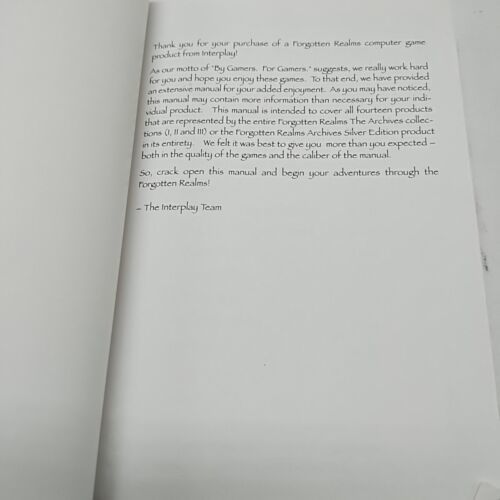 Thank you for your purchase of a Forgotten Realms computer game
product from Interplay!
As our motto of "By Gamers. For Gamers." suggests, we really work hard
for you and hope you enjoy these games. To that end, we have provided
an extensive manual for your added enjoyment. As you may have noticed,
this manual may contain more information than necessary for your indi-
vidual product. This manual is intended to cover all fourteen products
that are represented by the entire Forgotten Realms The Archives collec-
tions (I, II and III) or the Forgotten Realms Archives Silver Edition product
in its entirety. We felt it was best to give you more than you expected –
both in the quality of the games and the caliber of the manual.
So, crack open this manual and begin your adventures through the
Forgotten Realms!
– The Interplay Team